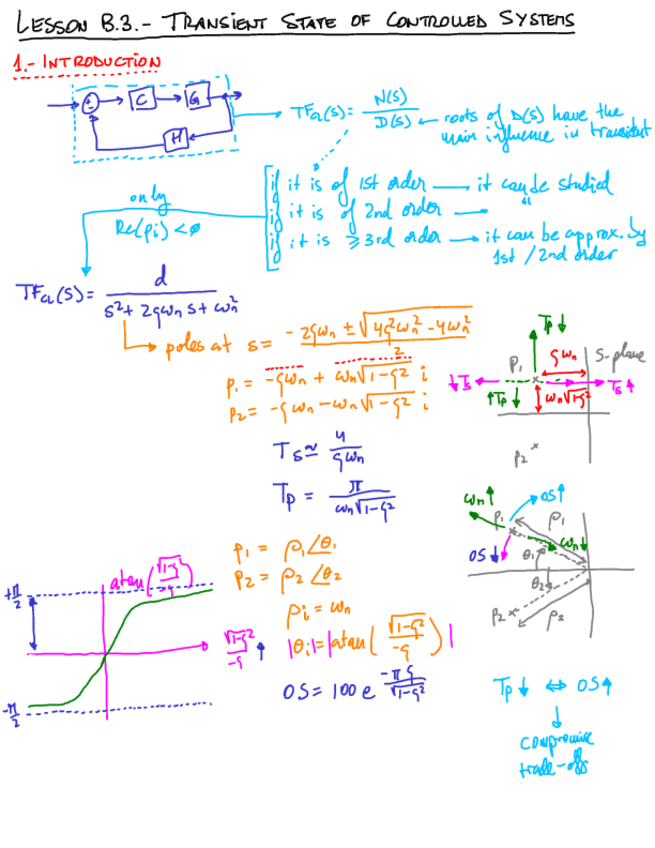 LESSON B.3.- TRANSIENT STATE OF CONTROLLED SYSTEMS
1.- INTRODUCTION
C
G
H
TF_CL(s) = N(s) / D(s) ← roots of D(s) have the
main influence in transient
only
Re(pi) < 0
if it is of 1st order — it can be studied
if it is of 2nd order — "
if it is ≥ 3rd order → it can be approx. by
1st / 2nd order
TF_CL(s) = d / (s² + 2ζωn s + ωn²)
poles at s = (-2ζωn ± √(4ζ²ωn² - 4ωn²)) / 2
P1 = -ζωn + ωn√(1-ζ²) i
P2 = -ζωn - ωn√(1-ζ²) i
Ts ≃ 4 / (ζωn)
Tp = π / (ωn√(1-ζ²))
Tp ↓
ζωn
S-plane
P1
↓Ts
Ts ↑
↑Tp ↓
ωn√(1-ζ²)
P2
P1 = ρ1∠θ1
P2 = ρ2∠θ2
ρi = ωn
|θi| = |atan(√(1-ζ²) / -ζ)|
OS = 100 e^(-πζ / √(1-ζ²))
ωn ↑
OS ↑
P1
ρ1
ωn ↓
OS ↓
θ1
θ2
P2
ρ2
+π/2
atan(√(1-ζ²) / -ζ)
√(1-ζ²) / -ζ ↑
-π/2
Tp ↓ ⇔ OS ↑
↓
compromise
trade-offs